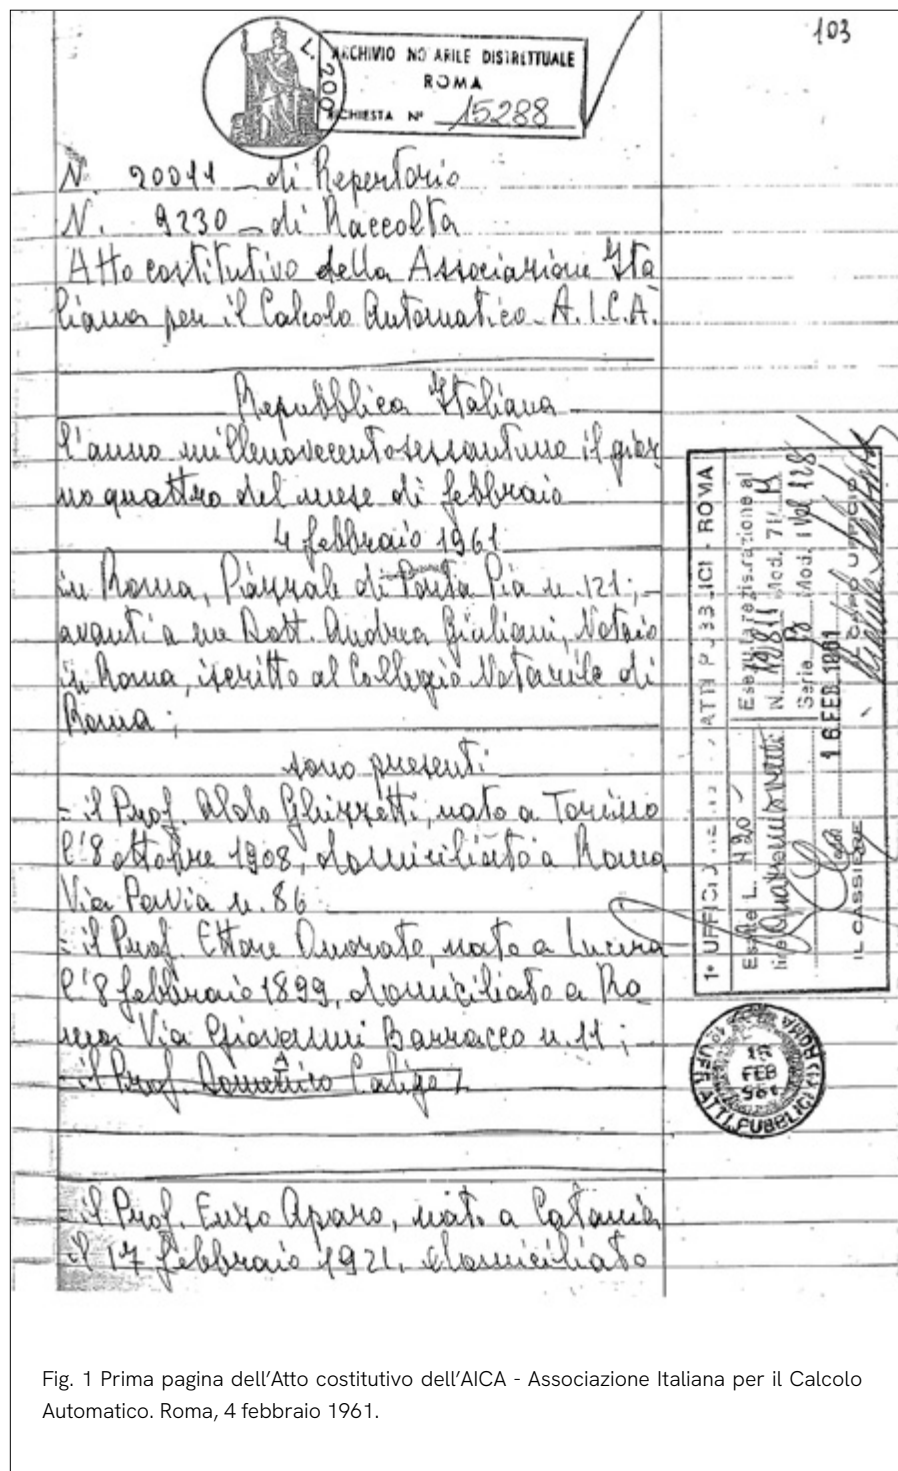 103
L. 200
ARCHIVIO NO ARILE DISTRETTUALE
ROMA
RICHIESTA N° 15288
N. 20011 di Repertorio
N. 9230 di Raccolta
Atto costitutivo della Associazione Ita
liana per il Calcolo Automatico A.I.C.A.
Repubblica Italiana
L'anno millenovecentosessantuno il gior
no quattro del mese di febbraio
4 febbraio 1961
in Roma, Piazzale di Porta Pia n. 121;
avanti a me Dott. Andrea Giuliani, Notaio
in Roma, iscritto al Collegio Notarile di
Roma;
sono presenti
- il Prof. Aldo Ghizzetti, nato a Torino
l'8 ottobre 1908, domiciliato a Roma
Via Pavia n. 86
- il Prof. Ettore Onorato, nato a Lucera
l'8 febbraio 1899, domiciliato a Ro
ma Via Giovanni Barracco n. 11;
- il Prof. Domenico Caligo
- il Prof. Enzo Aparo, nato a Catania
il 17 febbraio 1921, domiciliato
1° UFFICIO ATTI PUBBLICI - ROMA
Esatte L.
N. Mod. 71
Serie B Mod. I Vol 128
16 FEB. 1961
IL CASSIERE
UFFICIO
16
FEB
961
UFF. ATTI PUBBLICI ROMA
Fig. 1 Prima pagina dell'Atto costitutivo dell'AICA - Associazione Italiana per il Calcolo
Automatico. Roma, 4 febbraio 1961.